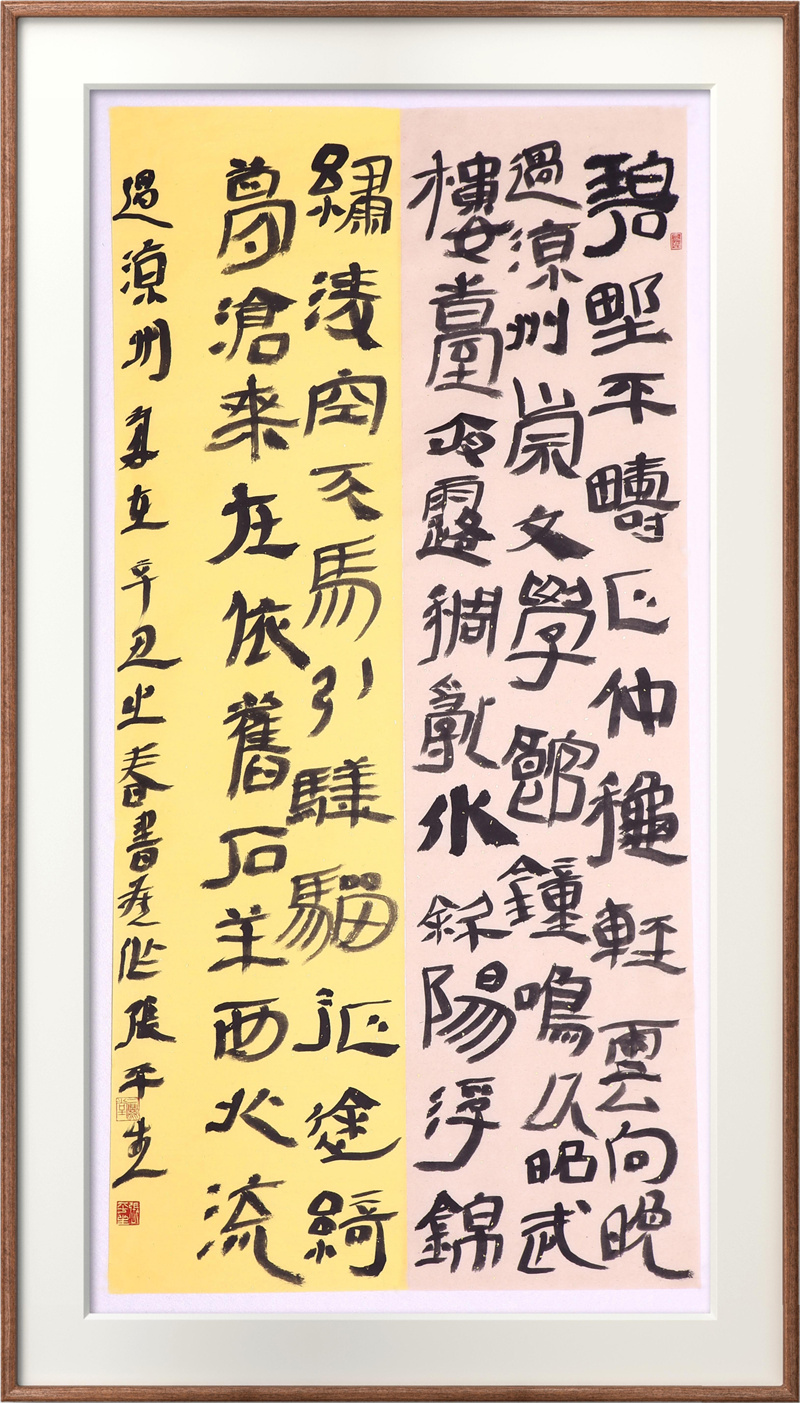 碧野平疇正仲穐輕雲向晚
過涼州崇文學館鐘鳴久昭武
樓臺夜露稠亂水斜陽浮錦
繡淩空天馬引驊騮征途綺
夢滄桑在依舊石羊西北流
過涼州 辛丑之春書舊作張平生